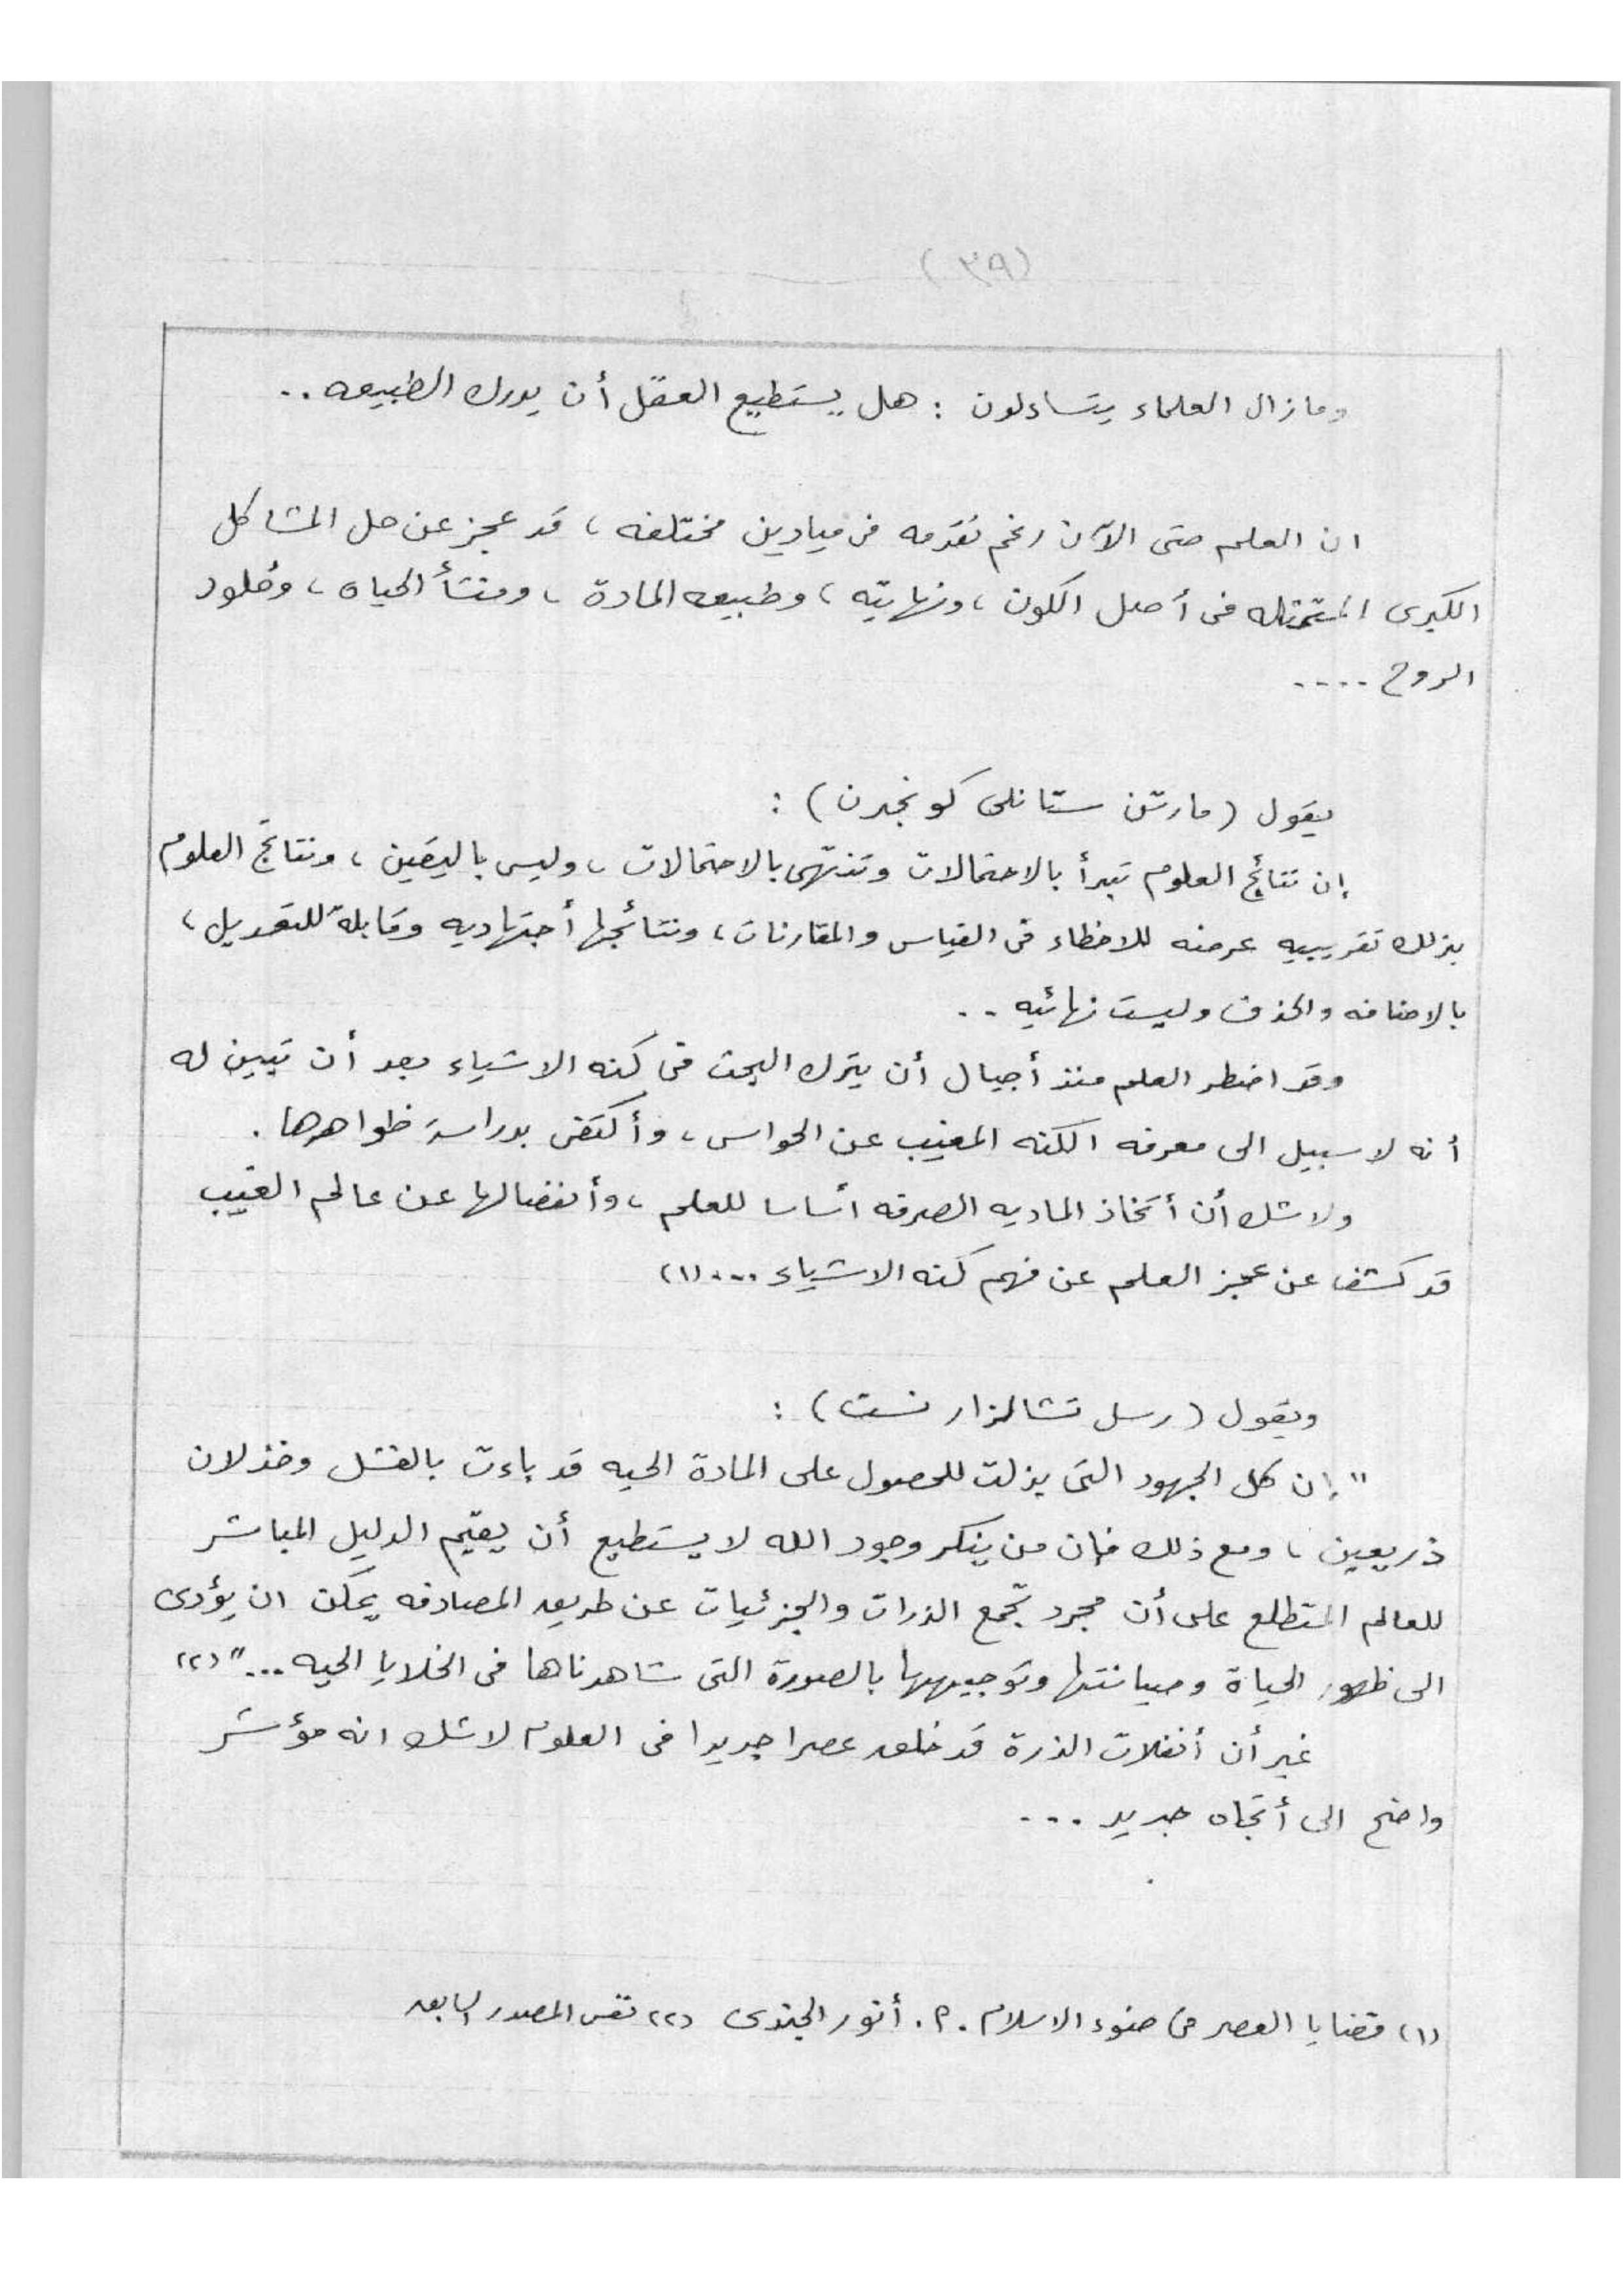 (٣٩)
ومازال العلماء يتساءلون : هل يستطيع العقل أن يدرك الطبيعه ..
ان العلم حتى الآن رغم تقدمه فى ميادين مختلفه ، قد عجز عن حل المشاكل
الكبرى المتمثله فى أصل الكون ، ونهايته ، وطبيعه المادة ، ومنشأ الحياه ، وخلود
الروح ....
يقول (مارتن ستانلى كونجدن) :
إن نتائج العلوم تبدأ بالاحتمالات وتنتهى بالاحتمالات ، وليس باليقين ، ونتائج العلوم
بذلك تقريبيه عرضه للاخطاء فى القياس والمقارنات ، ونتائجها أجتهاديه وقابلة للتعديل ،
بالاضافه والحذف وليست نهائيه ..
وقد اضطر العلم منذ أجيال أن يترك البحث فى كنه الاشياء بعد أن تبين له
أنه لا سبيل الى معرفه الكنه المغيب عن الحواس ، وأكتفى بدراسة ظواهرها .
ولاشك أن أتخاذ الماديه الصرفه أساسا للعلم ، وأنفصالها عن عالم الغيب
قد كشف عن عجز العلم عن فهم كنه الاشياء .... (١)
ويقول (رسل تشالزارنست) :
" إن كل الجهود التى بذلت للحصول على المادة الحيه قد باءت بالفشل وخذلان
ذريعين ، ومع ذلك فإن من ينكر وجود الله لا يستطيع أن يقيم الدليل المباشر
للعالم المتطلع على أن مجرد تجمع الذرات والجزئيات عن طريق المصادفه يمكن ان يؤدى
الى ظهور الحياة وصيانتها وتوجيهها بالصورة التى شاهدناها فى الخلايا الحيه ..." (٢)
غير أن أنفلات الذرة قد خلق عصرا جديدا فى العلوم لاشك انه مؤشر
واضح الى أتجاه جديد ...
(١) قضايا العصر فى ضوء الاسلام . م . أنور الجندى (٢) نفس المصدر السابق